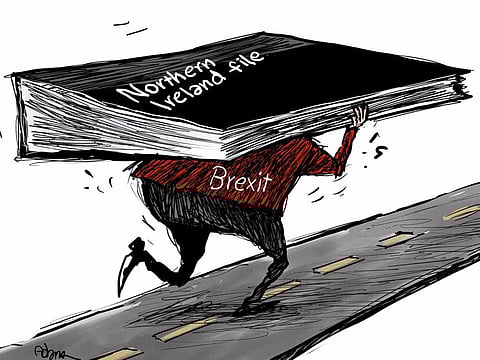 Northern
Ireland file
Brexit